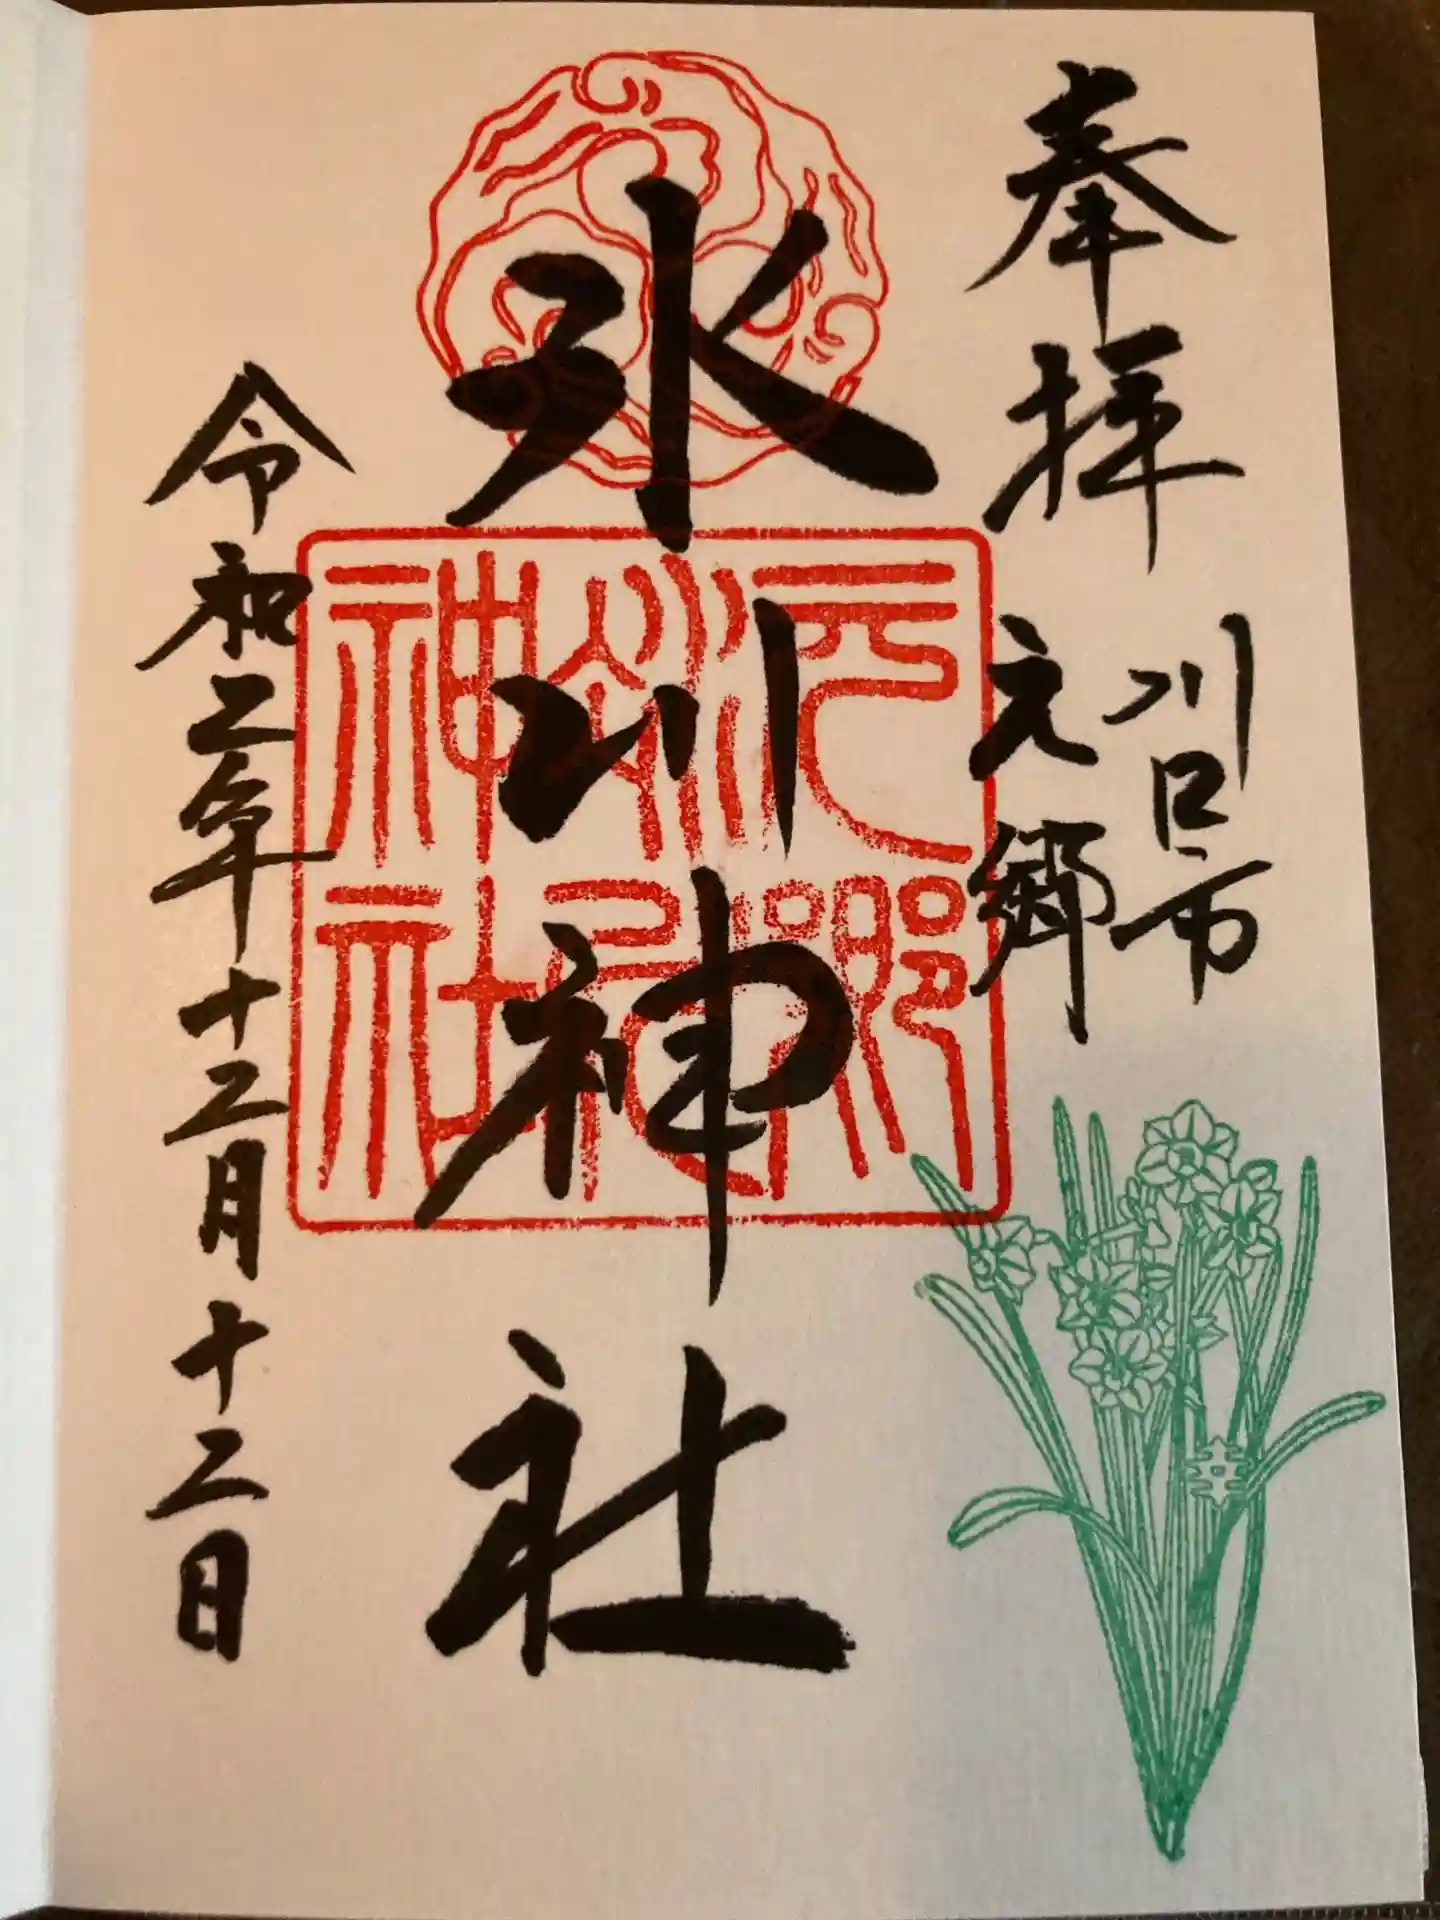 奉拝
川口市
元郷
氷川神社
令和二年十二月十二日
神社
幸